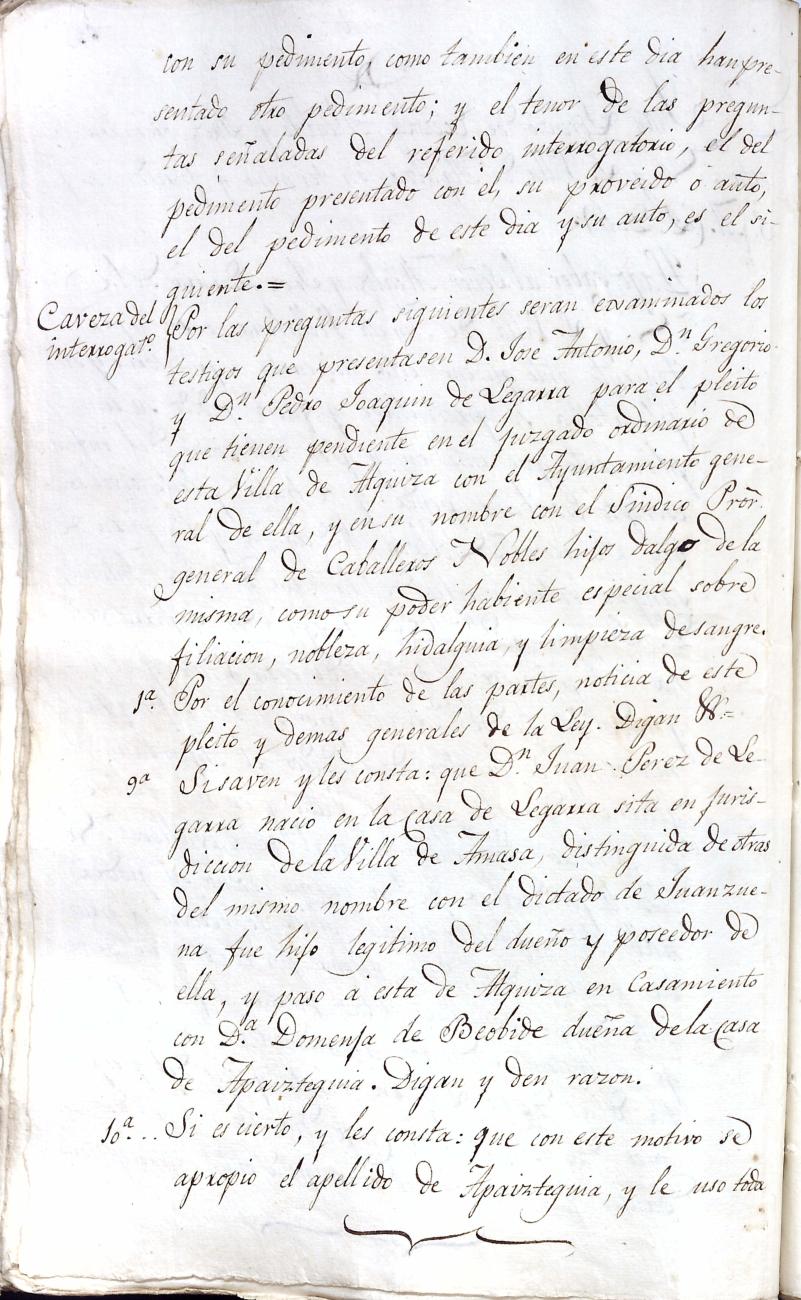 con su pedimento, como tambien en este dia han pre-
sentado otro pedimento; y el tenor de las pregun-
tas señaladas del referido interrogatorio, el del
pedimento presentado con el, su proveido o auto,
el del pedimento de este dia y su auto, es el si-
guiente.=
Caveza del
interrogat.º
Por las preguntas siguientes seran exsaminados los
testigos que presentasen D. Jose Antonio, D.n Gregorio
y D.n Pedro Joaquin de Legarra para el pleito
que tienen pendiente en el juzgado ordinario de
esta Villa de Alquiza con el Ayuntamiento gene-
ral de ella, y en su nombre con el Sindico Pror.
general de Caballeros Nobles hijos dalgo de la
misma, como su poder habiente especial sobre
filiacion, nobleza, hidalguia, y limpieza de sangre.
1ª. Por el conocimiento de las partes, noticia de este
pleito y demas generales de la Ley. Digan &.=
9ª Si saven y les consta: que D.n Juan Perez de Le-
garra nacio en la casa de Legarra sita en juris-
diccion de la Villa de Amasa, distinguida de otras
del mismo nombre con el dictado de Juanzue-
na fue hijo legitimo del dueño y poseedor de
ella, y paso á esta de Alquiza en Casamiento
con D.ª Domenja de Beobide dueña de la casa
de Apaizteguia. Digan y den razon.
10ª... Si es cierto, y les consta: que con este motivo se
apropio el apellido de Apaizteguia, y le uso toda